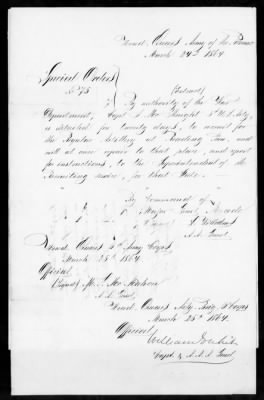 Head Quarters Army of the Potomac
March 24th 1864
Special Orders
No 75
(Extract)
By authority of the War
Department, Capt. J. McKnight 5th U.S. Arty,
is detailed for twenty days, to recruit for
the Regular Artillery at Reading Penn, and
will at once repair to that place, and report
for instructions, to the Superintendent of the
Recruiting service, for that State.
By Command of
Major Genl Meade
S. Williams
A.A. Genl.
Head Quarters 6th Army Corps
March 25th 1864
Official
(Signed) M. T. McMahon
A.A. Genl
Head Quarters Arty Brig 6th Corps
March 25th 1864
Official
William
Capt & A.A.A. Genl